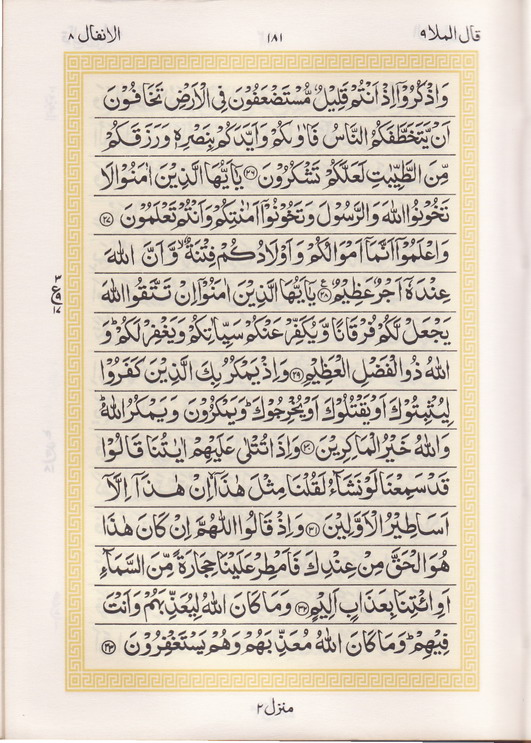 قال الملا ٩ ١٨١ الانفال ٨
وَاذْكُرُوْۤا اِذْ اَنْتُمْ قَلِيْلٌ مُّسْتَضْعَفُوْنَ فِى الْاَرْضِ تَخَافُوْنَ
اَنْ يَّتَخَطَّفَكُمُ النَّاسُ فَاٰوٰىكُمْ وَاَيَّدَكُمْ بِنَصْرِهٖ وَرَزَقَكُمْ
مِّنَ الطَّيِّبٰتِ لَعَلَّكُمْ تَشْكُرُوْنَ ۲۶ يٰۤاَيُّهَا الَّذِيْنَ اٰمَنُوْا لَا
تَخُوْنُوا اللّٰهَ وَالرَّسُوْلَ وَتَخُوْنُوْۤا اَمٰنٰتِكُمْ وَاَنْتُمْ تَعْلَمُوْنَ ۲۷
وَاعْلَمُوْۤا اَنَّمَاۤ اَمْوَالُكُمْ وَاَوْلَادُكُمْ فِتْنَةٌ ۙ وَّاَنَّ اللّٰهَ
عِنْدَهٗۤ اَجْرٌ عَظِيْمٌ ۲۸ يٰۤاَيُّهَا الَّذِيْنَ اٰمَنُوْۤا اِنْ تَتَّقُوا اللّٰهَ
يَجْعَلْ لَّكُمْ فُرْقَانًا وَّيُكَفِّرْ عَنْكُمْ سَيِّاٰتِكُمْ وَيَغْفِرْ لَكُمْ ؕ وَ
اللّٰهُ ذُو الْفَضْلِ الْعَظِيْمِ ۲۹ وَاِذْ يَمْكُرُ بِكَ الَّذِيْنَ كَفَرُوْا
لِيُثْبِتُوْكَ اَوْ يَقْتُلُوْكَ اَوْ يُخْرِجُوْكَ ؕ وَيَمْكُرُوْنَ وَيَمْكُرُ اللّٰهُ ؕ
وَاللّٰهُ خَيْرُ الْمَاكِرِيْنَ ۳۰ وَاِذَا تُتْلٰى عَلَيْهِمْ اٰيٰتُنَا قَالُوْا
قَدْ سَمِعْنَا لَوْ نَشَآءُ لَقُلْنَا مِثْلَ هٰذَاۤ ۙ اِنْ هٰذَاۤ اِلَّاۤ
اَسَاطِيْرُ الْاَوَّلِيْنَ ۳۱ وَاِذْ قَالُوا اللّٰهُمَّ اِنْ كَانَ هٰذَا
هُوَ الْحَقَّ مِنْ عِنْدِكَ فَاَمْطِرْ عَلَيْنَا حِجَارَةً مِّنَ السَّمَآءِ
اَوِ ائْتِنَا بِعَذَابٍ اَلِيْمٍ ۳۲ وَمَا كَانَ اللّٰهُ لِيُعَذِّبَهُمْ وَاَنْتَ
فِيْهِمْ ؕ وَمَا كَانَ اللّٰهُ مُعَذِّبَهُمْ وَهُمْ يَسْتَغْفِرُوْنَ ۳۳
منزل ۲